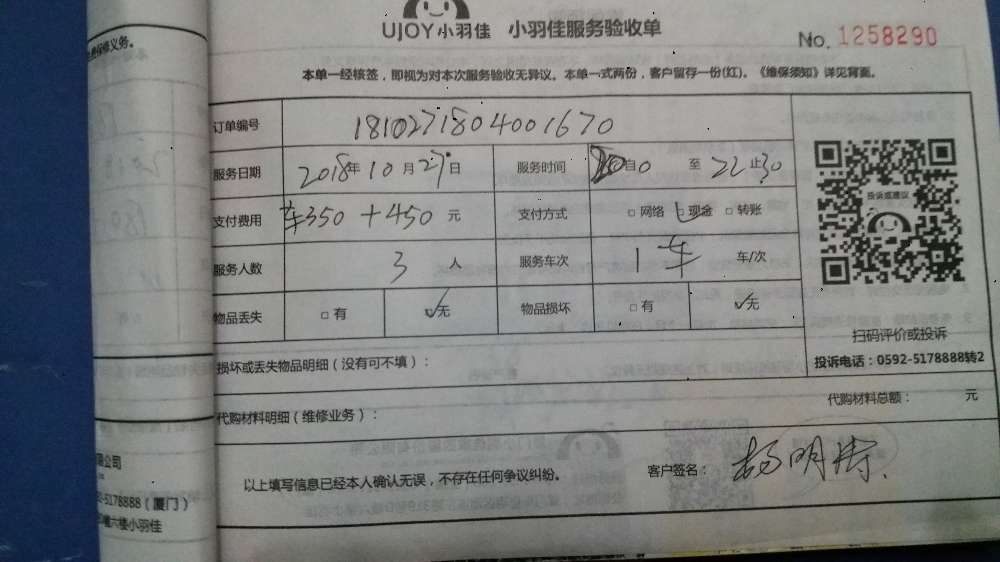 UJOY小羽佳 小羽佳服务验收单
No. 1258290
本单一经核签，即视为对本次服务验收无异议。本单一式两份，客户留存一份(红)。《维保须知》详见背面。
订单编号 1810271804001670
服务日期 2018年10月27日 服务时间 自 0 至 22止30
支付费用 车350+450元 支付方式 □网络 现金 □转账
服务人数 3人 服务车次 1车 车/次
物品丢失 □有 ✓无 物品损坏 □有 ✓无
投诉或建议
扫码评价或投诉
投诉电话：0592-5178888转2
损坏或丢失物品明细（没有可不填）：
代购材料明细（维修业务）： 代购材料总额： 元
以上填写信息已经本人确认无误，不存在任何争议纠纷。 客户签名：杨明涛
保修义务。
限公司
-5178888（厦门）
幢六楼小羽佳